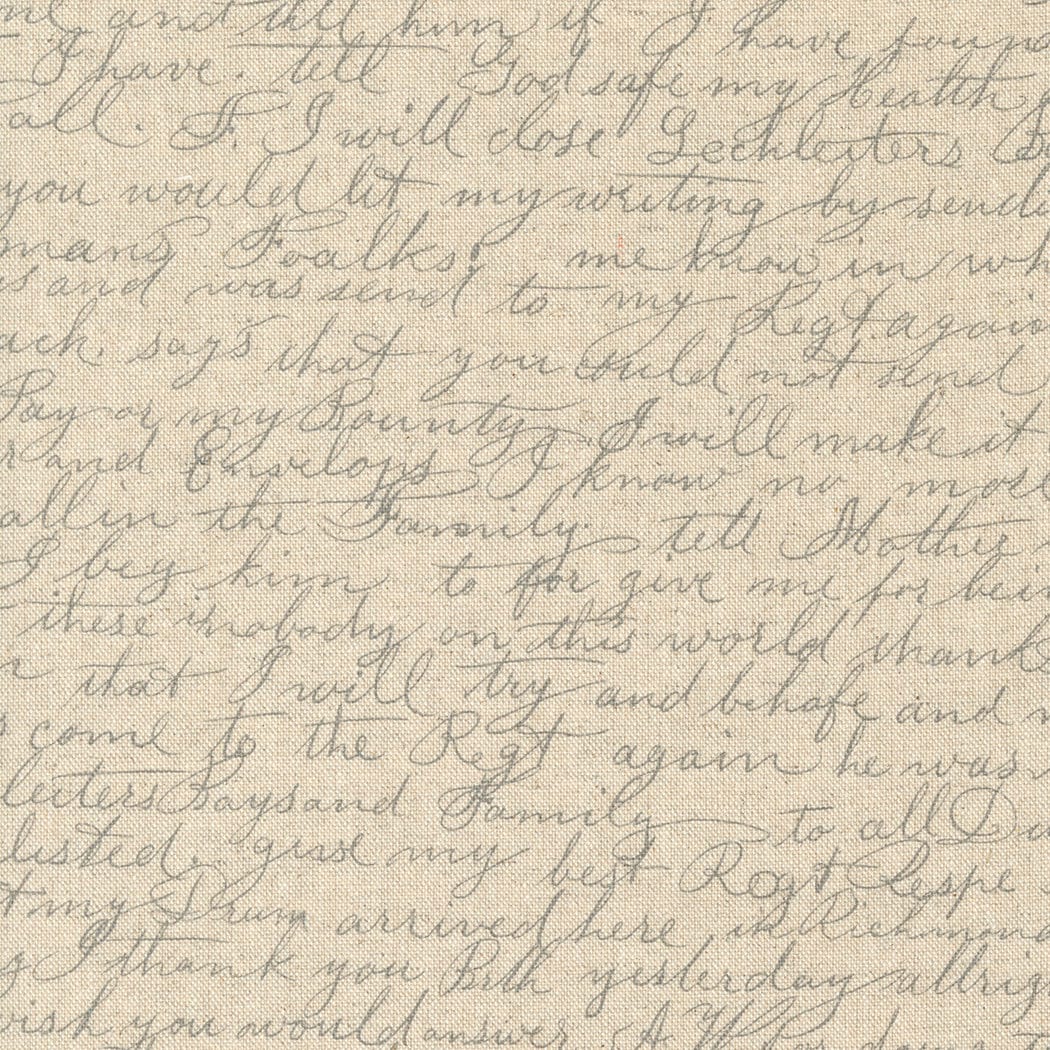 me and till him if I have foun
I have. tell God safe my Health
all. F. I will close Lechleiters
you would let my writing by send
mans Foalks. me know in wh
s and was send to my Regt agai
ack. says that you Could not send
Pay or my Bounty I will make it
r and Envelops I know no mor
all in the Family tell Mother
I beg him to for give me for bei
these in nobody on this world thank
that I will try and behafe and
come to the Regt again he was
leiters Says and Family to all D
listed. give my best Regt Respe
t my Drum arrived here in Richmond
I thank you Bill yesterday allrig
wish you would answer A W for